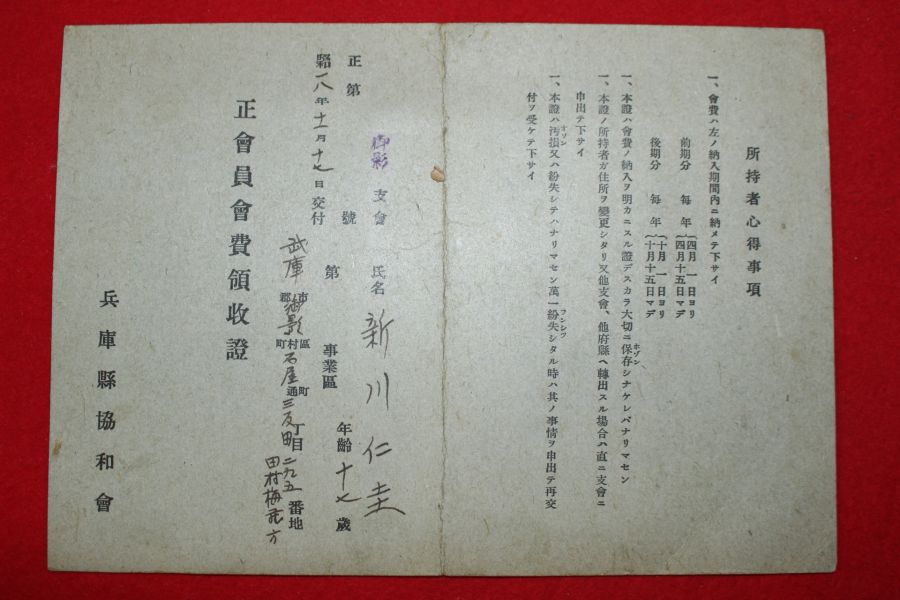 所持者心得事項
一、會費ハ左ノ納入期間內ニ納メテ下サイ
前期分 每年 (四月 一日ヨリ 四月十五日マデ)
後期分 每年 (十月 一日ヨリ 十月十五日マデ)
一、本證ハ會費ノ納入ヲ明カニスル證デスカラ大切ニ保存シナケレバナリマセン
ホゾン
一、本證ノ所持者ガ住所ヲ變更シタリ又他支會、他府縣ヘ轉出スル場合ハ直ニ支會ニ
申出テ下サイ
一、本證ハ汚損又ハ紛失シテハナリマセン萬一紛失シタル時ハ其ノ事情ヲ申出テ再交
オソン フンシツ
付ヲ受ケテ下サイ
御影 支會 氏名 新川仁圭
正第 號 第 事業區 年齡 十七 歲
昭一八年十一月十七日交付
武庫 郡市 御影 町村區 石屋 通町 三反田 丁目 二九五 番地
田村梅 方
正會員會費領收證
兵庫縣協和會